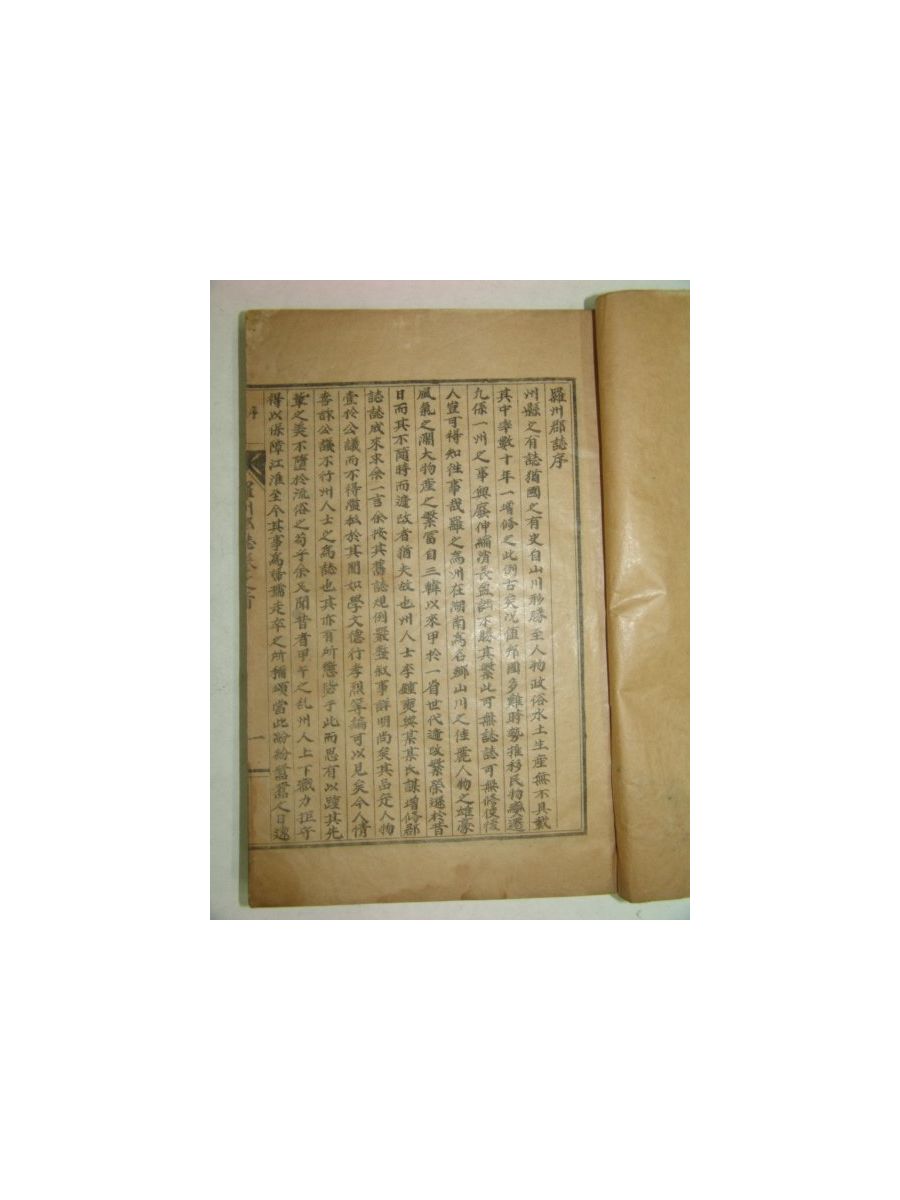 羅州郡誌序
州縣之有誌猶國之有史自山川形勝至人物政俗水土生産無不具載
其中率數十年一增修之此例古矣况值邦國多難時勢推移民物變遷
凡係一州之事與廢伸縮消長盈謝不勝其繁此可無誌誌可無修使後
人豈可得知往事哉羅之爲州在湖南爲名鄉山川之佳麗人物之雄豪
風氣之濶大物産之繁富自三韓以來甲於一省世代違改繁榮遜於昔
日而其不隨時而違改者猶夫故也州人士李鍾奭與某某氏謀增修郡
誌誌成來求余一言余按其舊誌規例嚴整叙事詳明尚矣其品定人物
壹於公議而不得濫私於其間如學文德行孝烈等編可以見矣今人情
吝詐公議不行州人士之爲誌也其亦有所懲毖于此而思有以踵其先
輩之美不墮於流俗之苟乎余又聞昔者甲午之乱州人上下戮力拒守
得以保障江淮至今其事爲婦孺走卒之所稱頌當此紛紛蠢蠢之日
序
羅州郡誌
一